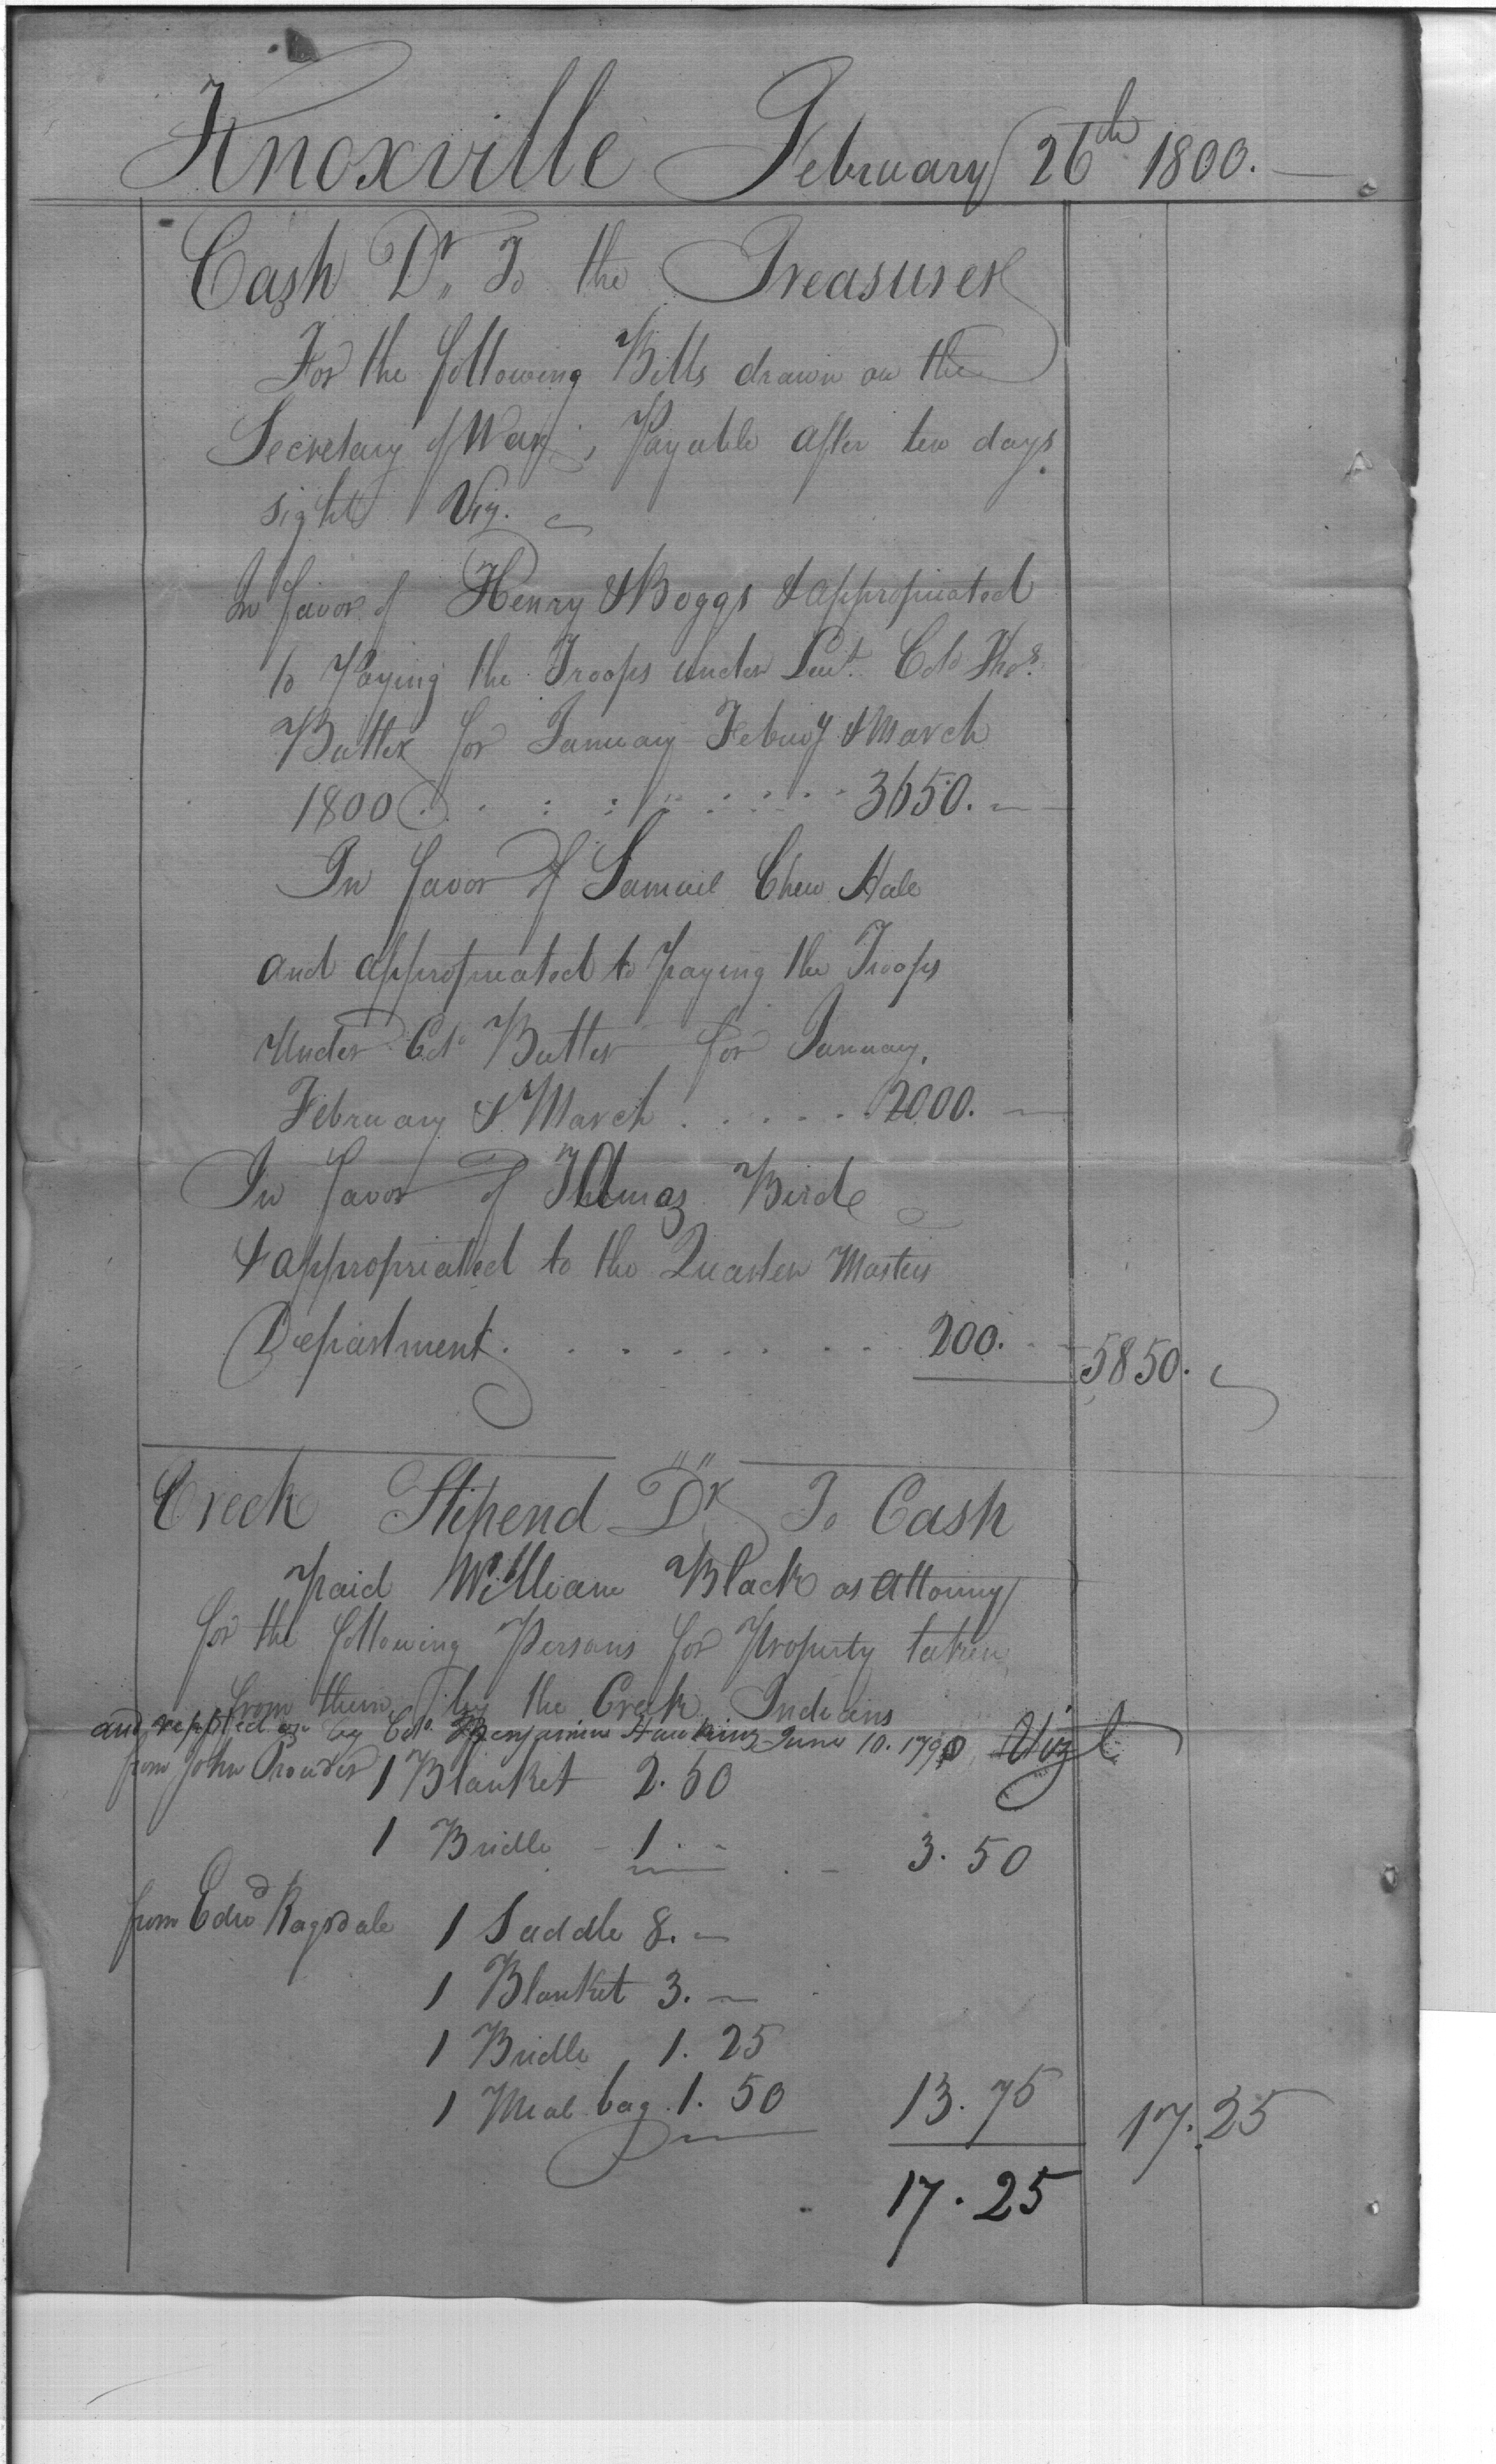 Knoxville February 26th 1800.
Cash Dr. To the Treasurer
For the following Bills drawn on the
Secretary of War, Payable after ten days
sight Viz.
In favor of Henry & Boggs & appropriated
to Paying the Troops under Lieut. Colo Thos.
Butler for January Febuy & March
1800 . . : : . . . . . . 3650. —
In favor of Samuel Chew Hale
and appropriated to paying the Troops
Under Colo Butler for January,
February & March . . . . . 2000. —
In favor of Thomas Birde
& appropriated to the Quarter Masters
Department . . . . . . . . . 200. 5850.
Creek Stipend Dr To Cash
paid William Black as attorney
for the following Persons for Property taken
from them by the Creek Indians
and reported on by Colo. Benjamin Hawkins June 10. 1799 Vizt
from John Crowder 1 Blanket 2.50
1 Bridle - 1. - 3.50
from Edwd Ragsdale 1 Saddle 8. —
1 Blanket 3. —
1 Bridle 1.25
1 Meal bag 1.50 13.75 17.25
17.25